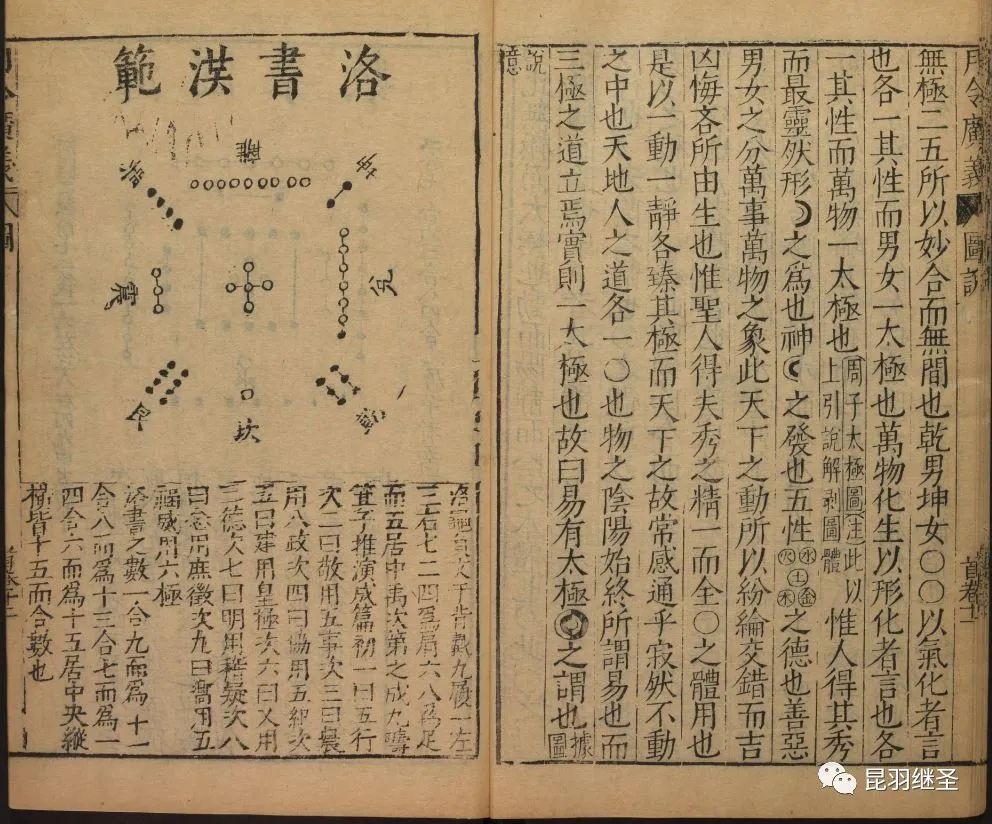 月令廣義
圖說
首卷
無極二五所以妙合而無間也乾男坤女〇〇以氣化者言
也各一其性而男女一太極也萬物化生以形化者言也各
一其性而萬物一太極也周子太極圖注此以上引說解剥圖體惟人得其秀
而最靈然形之為也神之發也五性水火土金木之德也善惡
男女之分萬事萬物之象此天下之動所以紛綸交錯而吉
凶悔吝所由生也惟聖人得夫秀之精一而全〇之體用也
是以一動一靜各臻其極而天下之故常感通乎寂然不動
之中也天地人之道各一〇也物之陰陽始終所謂易也而
三極之道立焉實則一太極也故曰易有太極之謂也據圖
說意
洛書洪範
離
坤
巽
兌
震
乾
艮
坎
洛龜負文于背戴九履一左
三右七二四為肩六八為足
而五居中禹次第之成九疇
箕子推演成篇初一曰五行
次二曰敬用五事次三曰農
用八政次四曰協用五紀次
五曰建用皇極次六曰乂用
三德次七曰明用稽疑次八
曰念用庶徵次九曰嚮用五
福威用六極
洛書之數一合九而為十二
合八而為十三合七而為十
四合六而為十五居中央縱
橫皆十五而合數也
昆羽继圣